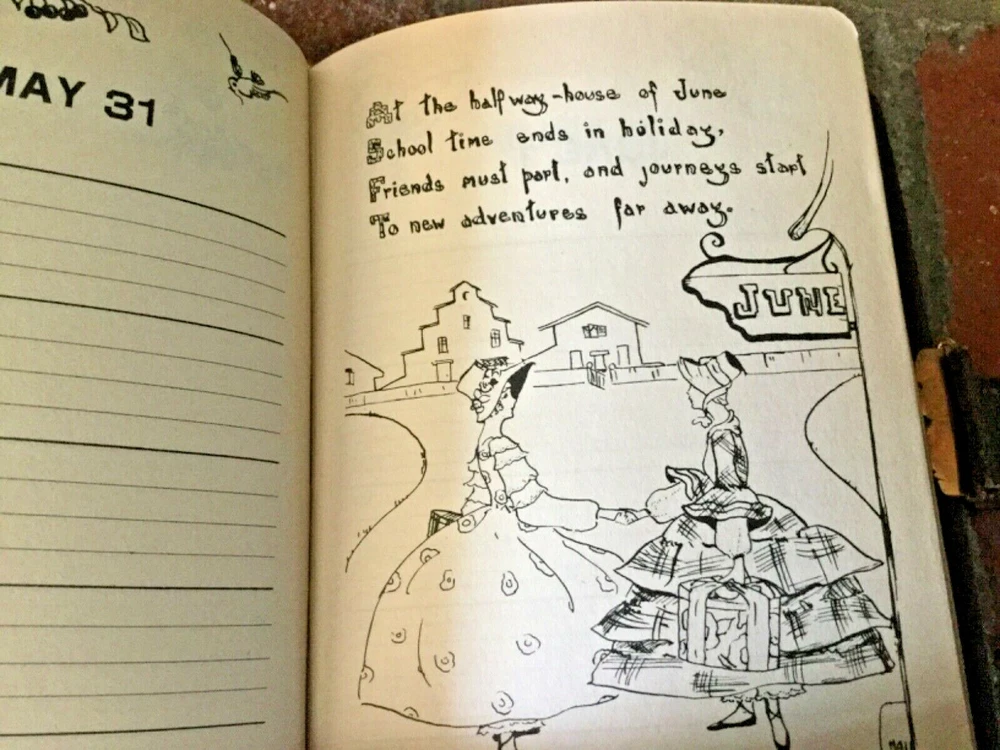 MAY 31
At the halfway-house of June
School time ends in holiday,
Friends must part, and journeys start
To new adventures far away.
JUNE